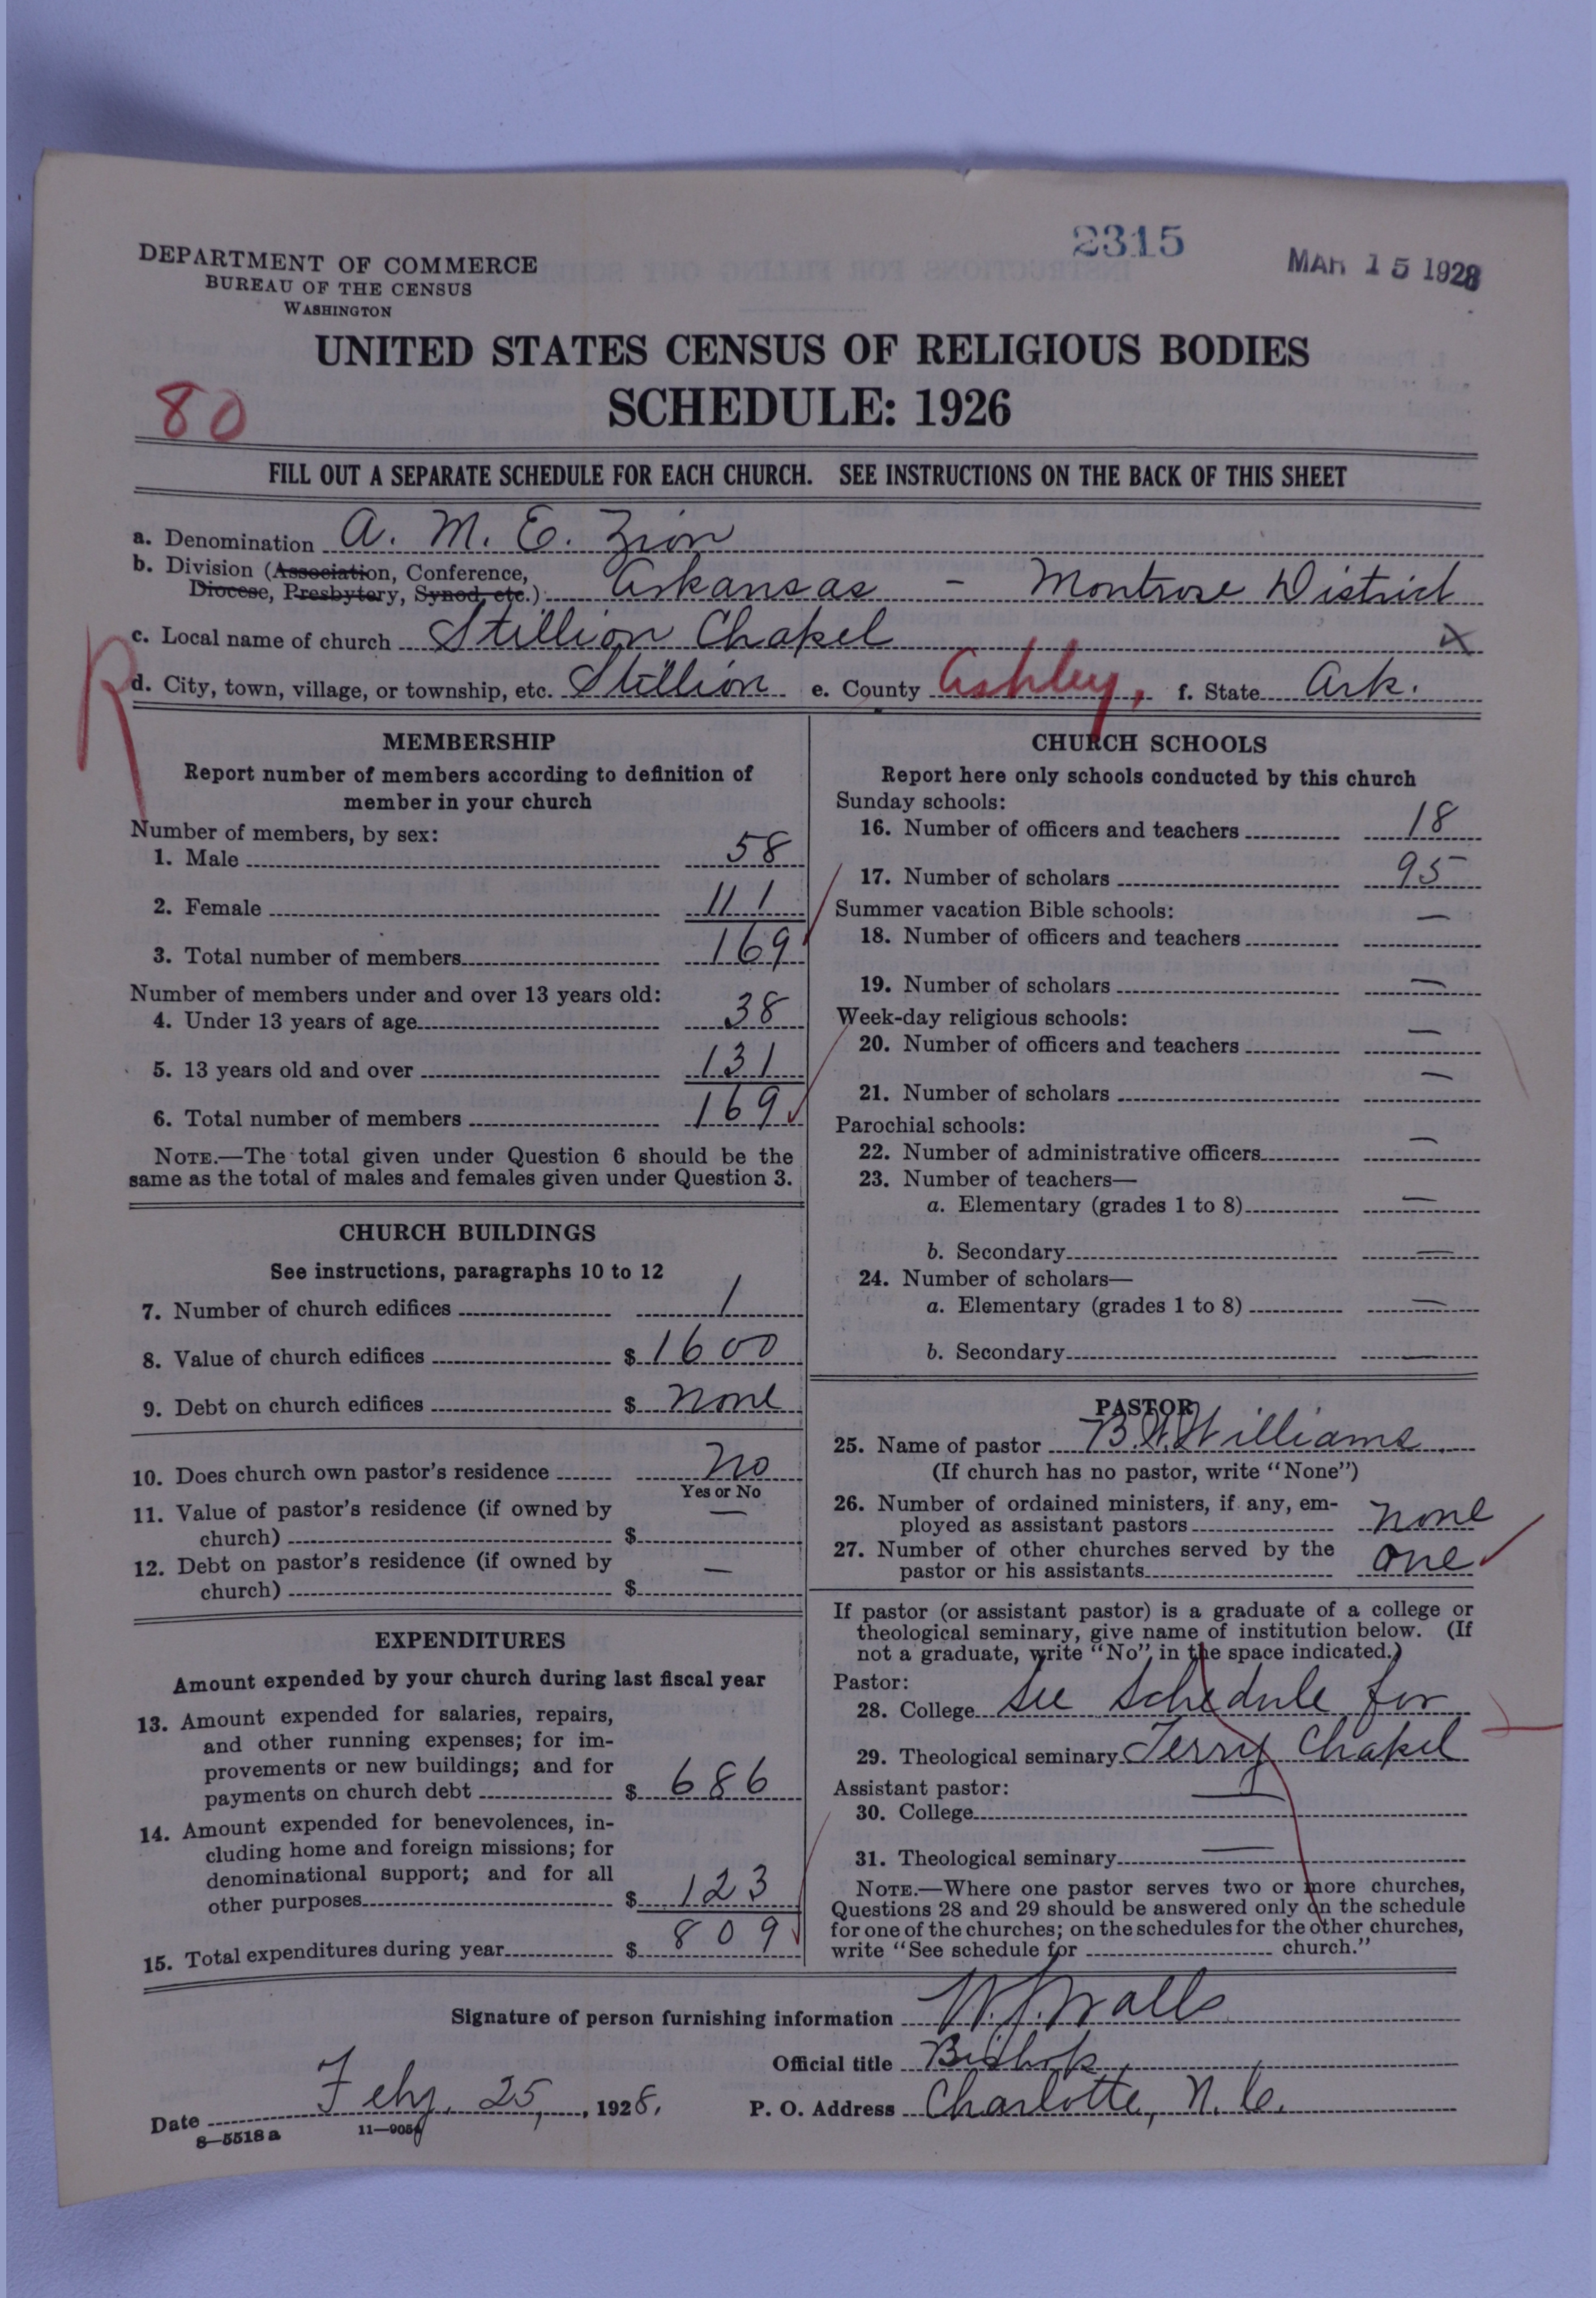 2315
MAR 15 1928
DEPARTMENT OF COMMERCE
BUREAU OF THE CENSUS
WASHINGTON
UNITED STATES CENSUS OF RELIGIOUS BODIES
SCHEDULE: 1926
80
FILL OUT A SEPARATE SCHEDULE FOR EACH CHURCH. SEE INSTRUCTIONS ON THE BACK OF THIS SHEET
a. Denomination A. M. E. Zion
b. Division (Association, Conference,
Diocese, Presbytery, Synod, etc.) Arkansas - Montrose District
c. Local name of church Stillion Chapel x
R
d. City, town, village, or township, etc. Stillion e. County Ashley, f. State Ark.
MEMBERSHIP
Report number of members according to definition of
member in your church
Number of members, by sex:
1. Male 58
2. Female 111
3. Total number of members 169
Number of members under and over 13 years old:
4. Under 13 years of age 38
5. 13 years old and over 131
6. Total number of members 169
NOTE.—The total given under Question 6 should be the
same as the total of males and females given under Question 3.
CHURCH BUILDINGS
See instructions, paragraphs 10 to 12
7. Number of church edifices 1
8. Value of church edifices $ 1600
9. Debt on church edifices $ none
10. Does church own pastor's residence No
Yes or No
11. Value of pastor's residence (if owned by
church) $ —
12. Debt on pastor's residence (if owned by
church) $ —
EXPENDITURES
Amount expended by your church during last fiscal year
13. Amount expended for salaries, repairs,
and other running expenses; for im-
provements or new buildings; and for
payments on church debt $ 686
14. Amount expended for benevolences, in-
cluding home and foreign missions; for
denominational support; and for all
other purposes $ 123
15. Total expenditures during year $ 809
CHURCH SCHOOLS
Report here only schools conducted by this church
Sunday schools:
16. Number of officers and teachers 18
17. Number of scholars 95
Summer vacation Bible schools:
18. Number of officers and teachers —
19. Number of scholars —
Week-day religious schools:
20. Number of officers and teachers —
21. Number of scholars —
Parochial schools:
22. Number of administrative officers —
23. Number of teachers—
a. Elementary (grades 1 to 8) —
b. Secondary —
24. Number of scholars—
a. Elementary (grades 1 to 8) —
b. Secondary —
PASTOR
25. Name of pastor B.W. Williams
(If church has no pastor, write "None")
26. Number of ordained ministers, if any, em-
ployed as assistant pastors none
27. Number of other churches served by the
pastor or his assistants one
If pastor (or assistant pastor) is a graduate of a college or
theological seminary, give name of institution below. (If
not a graduate, write "No" in the space indicated.)
Pastor:
28. College See Schedule for
29. Theological seminary Terry Chapel
Assistant pastor:
30. College —
31. Theological seminary —
NOTE.—Where one pastor serves two or more churches,
Questions 28 and 29 should be answered only on the schedule
for one of the churches; on the schedules for the other churches,
write "See schedule for church."
Signature of person furnishing information W. J. Walls
Official title Bishop
Date Feby. 25, 1928. P. O. Address Charlotte, N. C.
8—5518a 11—9054